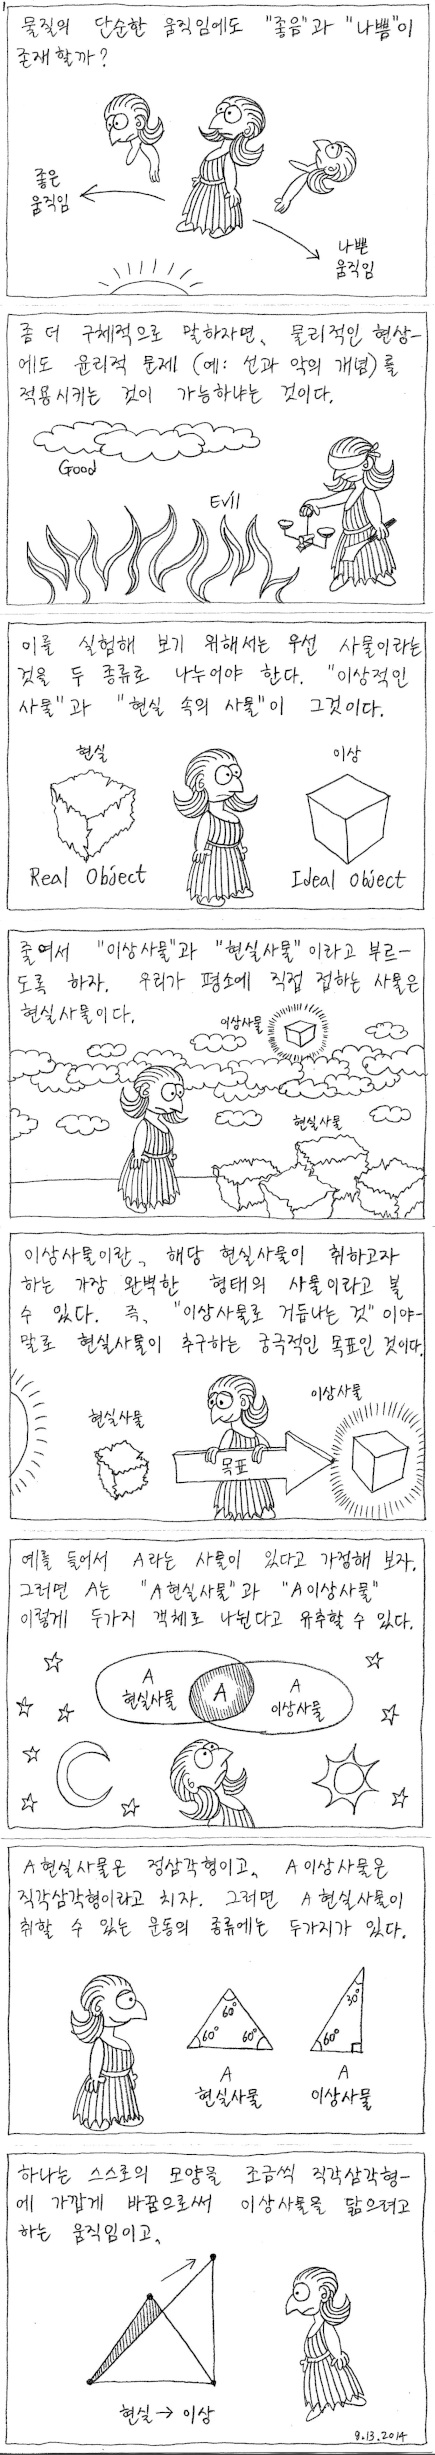 물질의 단순한 움직임에도 "좋음"과 "나쁨"이
존재할까?
좋은
움직임
나쁜
움직임
좀 더 구체적으로 말하자면, 물리적인 현상-
에도 윤리적 문제 (예: 선과 악의 개념)를
적용시키는 것이 가능하냐는 것이다.
Good
Evil
이를 실험해 보기 위해서는 우선 사물이라는
것을 두 종류로 나누어야 한다. "이상적인
사물"과 "현실 속의 사물"이 그것이다.
현실
이상
Real Object
Ideal Object
줄여서 "이상사물"과 "현실사물"이라고 부르-
도록 하자. 우리가 평소에 직접 접하는 사물은
현실사물이다.
이상사물
현실사물
이상사물이란, 해당 현실사물이 취하고자
하는 가장 완벽한 형태의 사물이라고 볼
수 있다. 즉, "이상사물로 거듭나는 것"이야-
말로 현실사물이 추구하는 궁극적인 목표인 것이다.
현실사물
이상사물
목표
예를 들어서 A라는 사물이 있다고 가정해 보자.
그러면 A는 "A현실사물"과 "A이상사물"
이렇게 두가지 객체로 나뉜다고 유추할 수 있다.
A
현실사물
A
A
이상사물
A현실사물은 정삼각형이고, A이상사물은
직각삼각형이라고 치자. 그러면 A현실사물이
취할 수 있는 운동의 종류에는 두가지가 있다.
60°
60°
60°
30°
60°
A
현실사물
A
이상사물
하나는 스스로의 모양을 조금씩 직각삼각형-
에 가깝게 바꿈으로써 이상사물을 닮으려고
하는 움직임이고,
현실 → 이상
8.13.2014